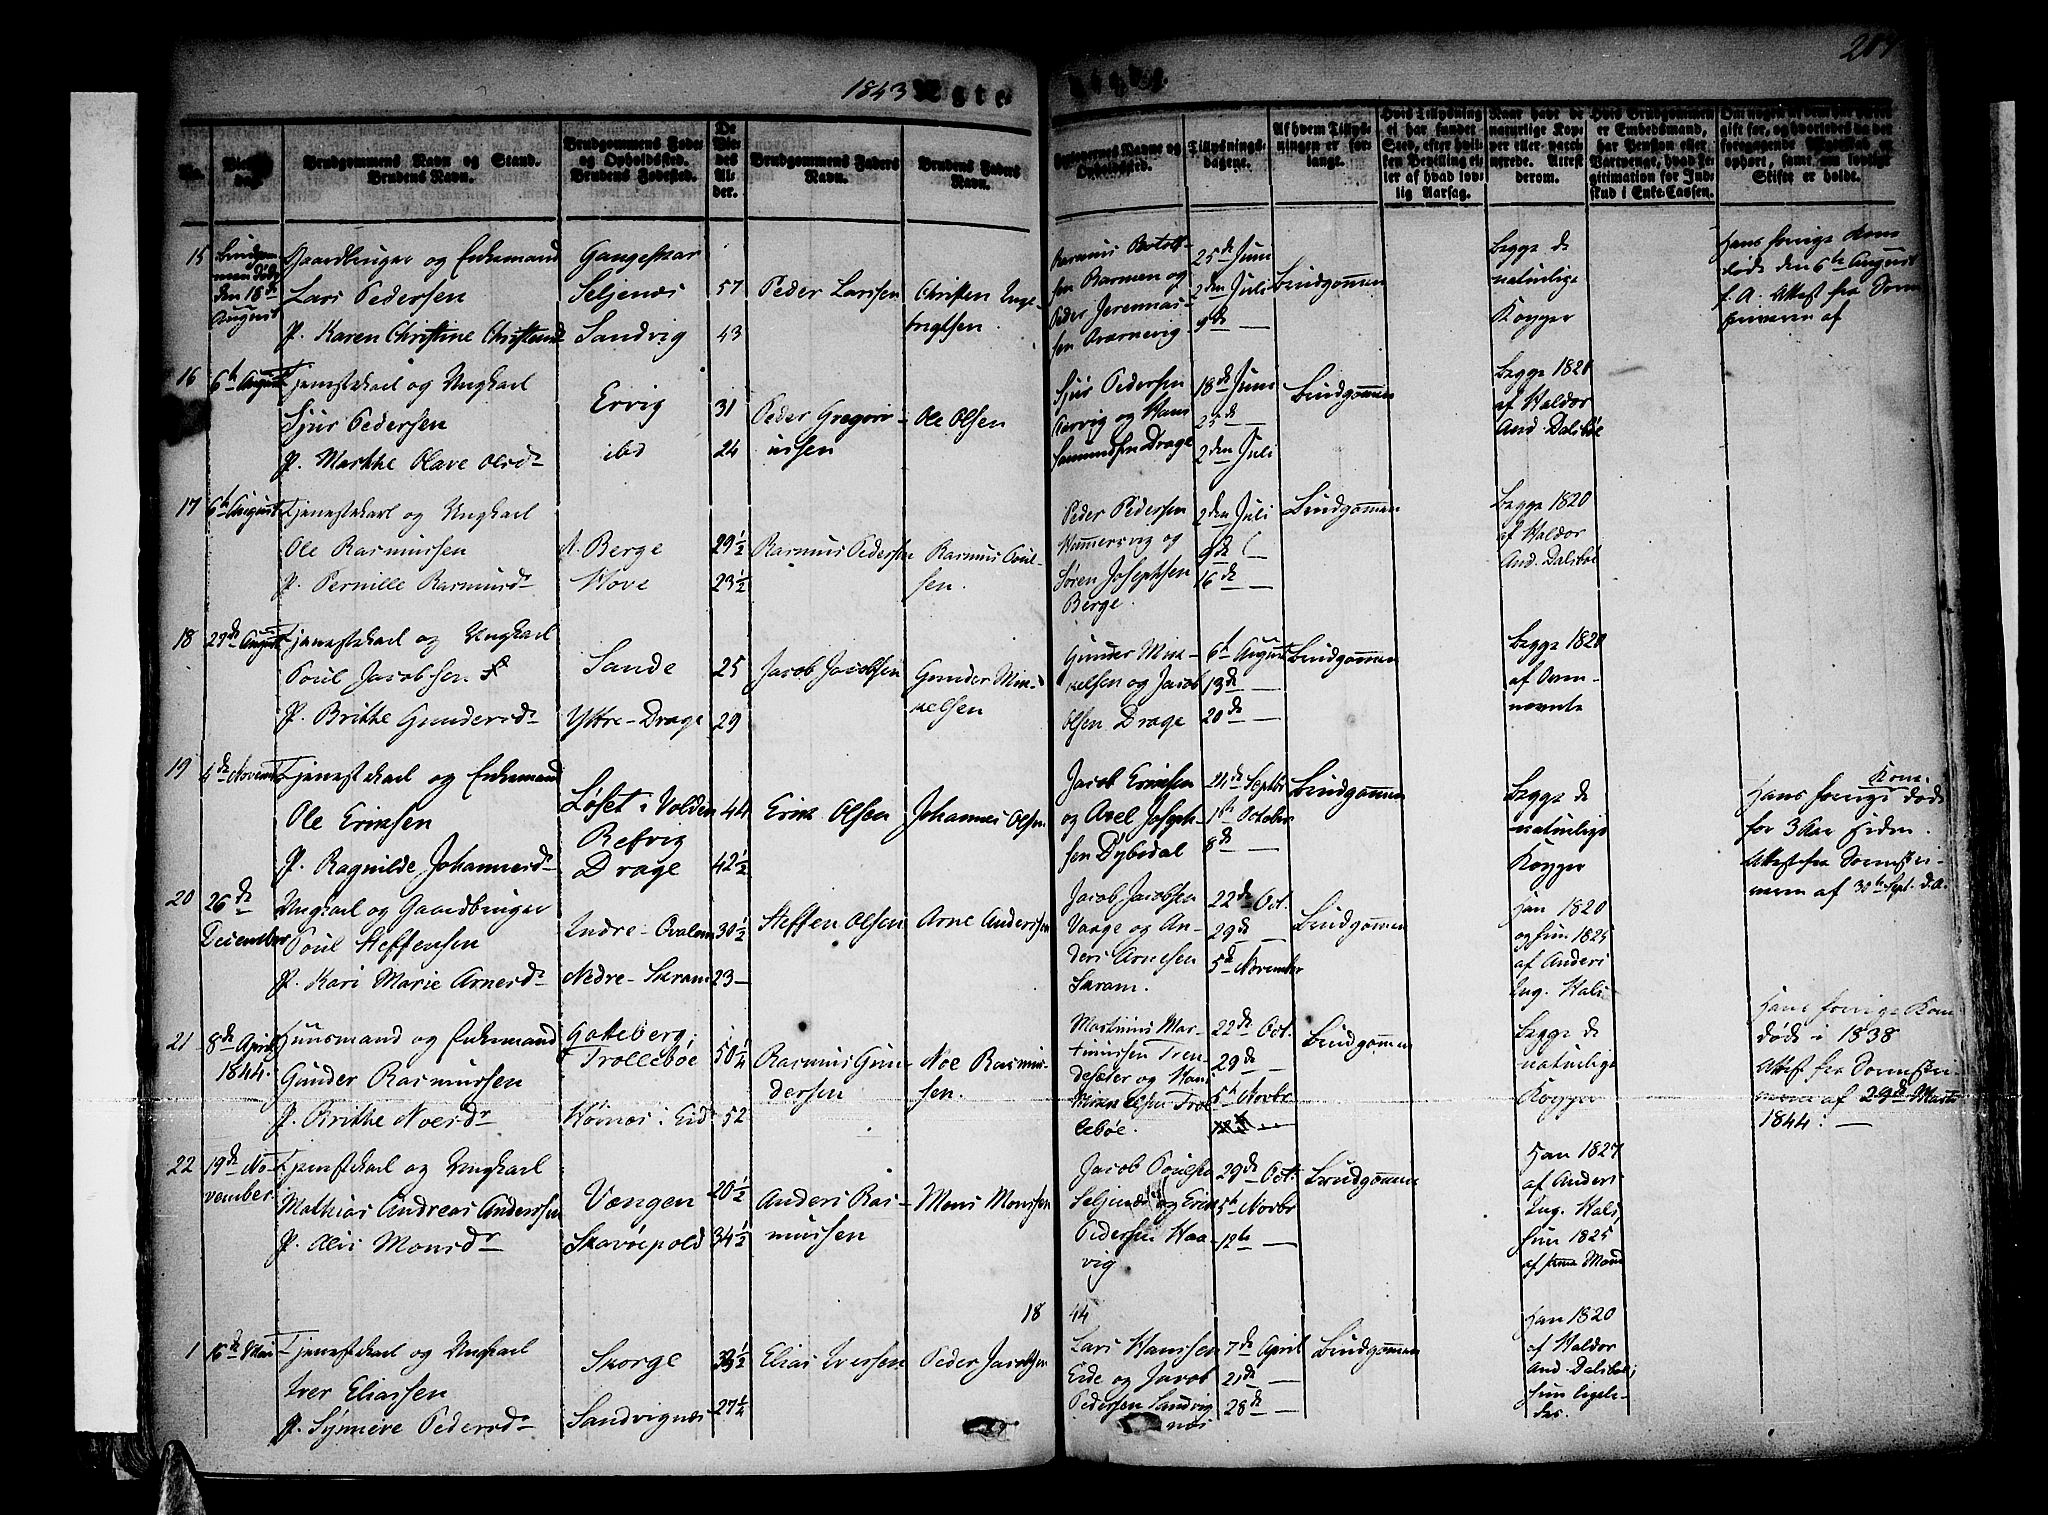 1843 Ægte
204
No.
Brudgommens Navn og Stand.
Brudens Navn.
Brudgommens Føde-
og Opholdssted.
Brudens Fødested.
De
Vie-
des
Al-
der.
Brudgommens Faders
Navn.
Brudens Faders
Navn.
Forlovernes Navne og
Opholdssted.
Tillysnings-
dagene.
Af hvem Tillys-
ningen er for-
lange.
Hvis Tillysning
ei har fundet
Sted, efter hvil-
ken Bevilling el-
ler af hvad lov-
lig Aarsag.
Naar have de
naturlige Kop-
per eller vacci-
nerede. Attest
derom.
Hvis Brudgommen
er Embedsmand,
har Pension eller
Vartpenge, hvad Le-
gitimation for Ind-
skud i Enke-Cassen.
Om nogen af dem har været
gift før, og hvorledes da det
foregaaende Ægteskab er
ophørt, samt om lovligt
Skifte er holdt.
15
den 18de
August
Gaardbruger og Enkemand
Lars Pedersen
P. Karen Christine Christensd
Gangeskar
Seljenæs
Sandvig
57
43
Peder Larssen
Christen Inge-
brigtsen.
Rasmus Bertelt-
sen Barmen og
Peder Jeremias-
sen Aarnevig
25de Juni
2den Juli
9de —
Brudgommen
Begge de
naturlige
Kopper
Hans forrige Kone
døde den 6te August
f. A. Attest fra Sorens-
kriveren af
16
6te August
Tjenestekarl og Ungkarl
Sjur Pedersen
P. Marthe Olave Olsdr
Ervig
ibd
31
24
Peder Gregori-
ussen
Ole Olsen
Sjur Pedersen
Ervig og Hans
Samundsen Drage
18de Juni
25de —
2den Juli
Brudgommen
Begge 1820
af Haldor
And. Dalsbøe
17
6te August
Tjenestekarl og Ungkarl
Ole Rasmussen
P. Pernille Rasmusdr
N. Berge
Hove
29½
23½
Rasmus Pedersen
Rasmus Poul-
sen.
Peder Pedersen
Hummersvig og
Søren Josephsen
Berge.
2den Juli
9de —
16de
Brudgommen
Begge 1820
af Haldor
And. Dalsbøe
18
29de August
Tjenestekarl og Ungkarl
Poul Jacobsen
P. Brithe Gundersdr
Sande
Yttre-Drage
25
29
Jacob Jacobsen
Gunder Mik-
kelsen
Gunder Mik-
kelsen og Jacob
Olsen Drage
6te August
13de —
20de —
Brudgommen
Begge 1820
af Oven-
nævnte
19
4de Novemb
Tjenestekarl og Enkemand
Ole Eriksen
P. Ragnilde Johannesdr
Løset i Volden
Refvig
Drage
44
42½
Erik Olsen
Johannes Olsen
Jacob Eriksen
og Axel Joseph-
sen Dybedal
24de Septbr
1ste October
8de —
Brudgommen
Begge de
naturlige
Kopper
Hans forrige Kone døde
for 3 Aar siden.
Attest fra Sorenskri-
veren af 30te Sept. d.A.
20
26de
December
Ungkarl og Gaardbruger
Poul Steffensen
P. Kari Marie Arnesdr
Indre-Ovalem
Nedre-Skram
30½
23—
Steffen Olsen
Arne Anderssen
Jacob Jacobsen
Vaage og An-
ders Arnesen
Skram.
22de Oct.
29de —
5te November
Brudgommen
Han 1820
og hun 1825
af Anders
Ing. Hals
21
8de April
1844.
Huusmand og Enkemand
Gunder Rasmussen
P. Brithe Noesdr
Gotteberg
Trollebøe
Hornæs i Eid
50¼
52
Rasmus Gun-
dersen
Noe Rasmus-
sen.
Martinus Mar-
tinussen Tren-
desæter og Hans
Mikkelsen Trol-
lebøe.
22de Oct.
29de —
5te Novbr
Brudgommen
Begge de
naturlige
Kopper
Hans forrige Kone
døde i 1838
Attest fra Sorenskri-
veren af 29de Marts
1844. —
22
19de No-
vember
Tjenestekarl og Ungkarl
Mathias Andreas Anderssen
P. Alis Monsdr
Vængen
Skavøepold
20½
34½
Anders Ras-
mussen
Mons Monssen
Jacob Poulsen
Seljenæs og Erik
Pedersen Haa-
vig
29de Oct.
5te Novbr
12te —
Brudgommen
Han 1827
af Anders
Ing. Hals,
hun 1825
af samme Mand
1844
1
16de Mai
Tjenestekarl og Ungkarl
Iver Eliassen
P. Synneve Pedersdr
Skorge
Sandvignæs
27¼
Elias Iversen
Peder Jacobsen
Lars Hanssen
Eide og Jacob
Pedersen Sandvig
næs
7de April
21de —
28de —
Brudgommen
Han 1820
af Haldor
And. Dalsbøe,
hun ligele-
des.